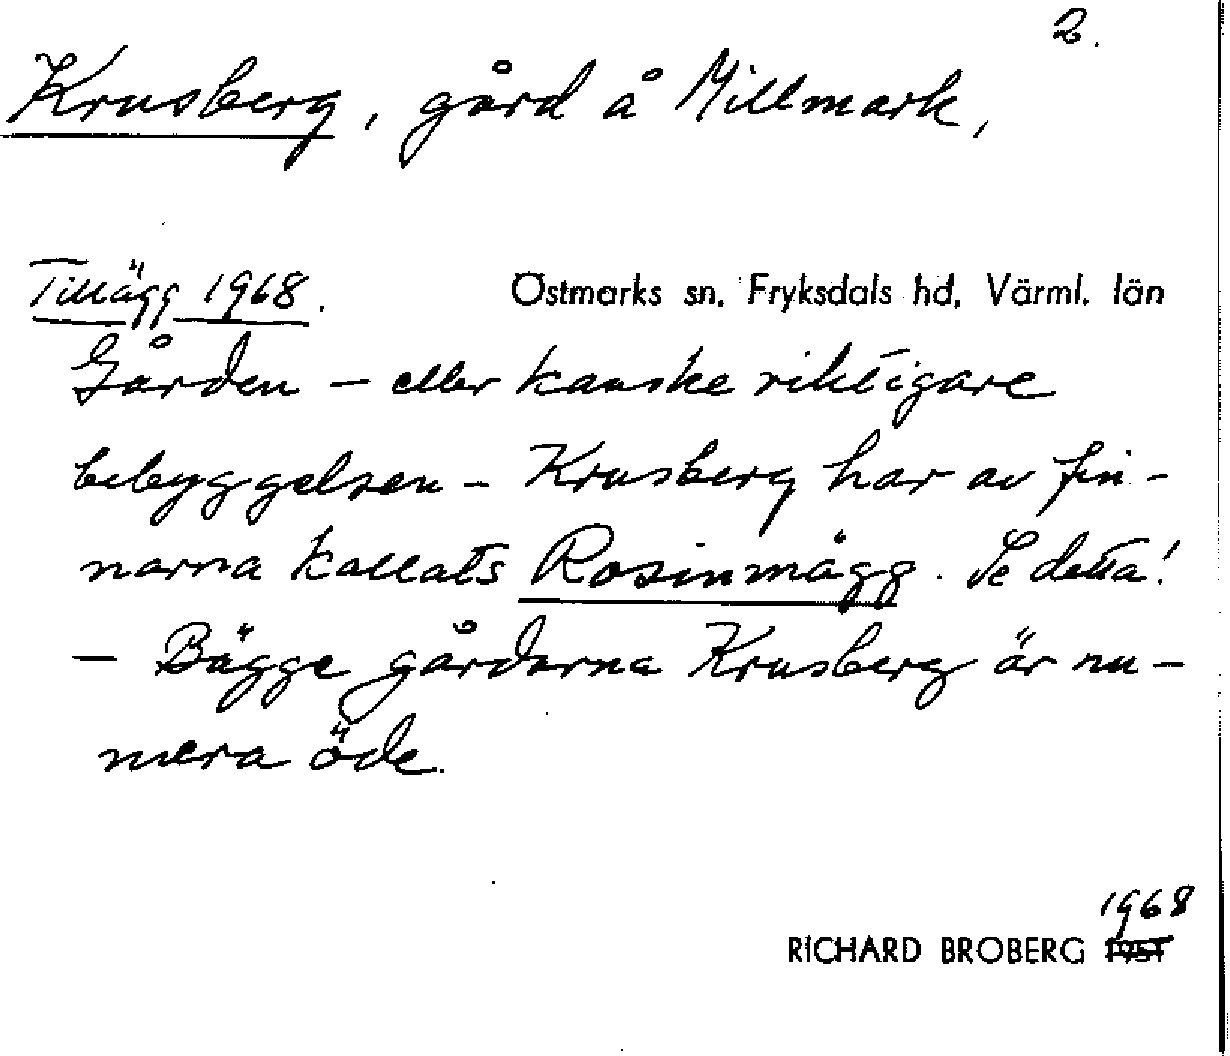 2.
Krusberg, gård å Millmark,
Tillägg 1968.
Östmarks sn. Fryksdals hd, Värml. län
Gården – eller kanske riktigare
bebyggelsen – Krusberg har av fin-
narna kallats Rosinmägg. Se detta!
– Bägge gårdarna Krusberg är nu-
mera öde.
1968
RICHARD BROBERG 1951